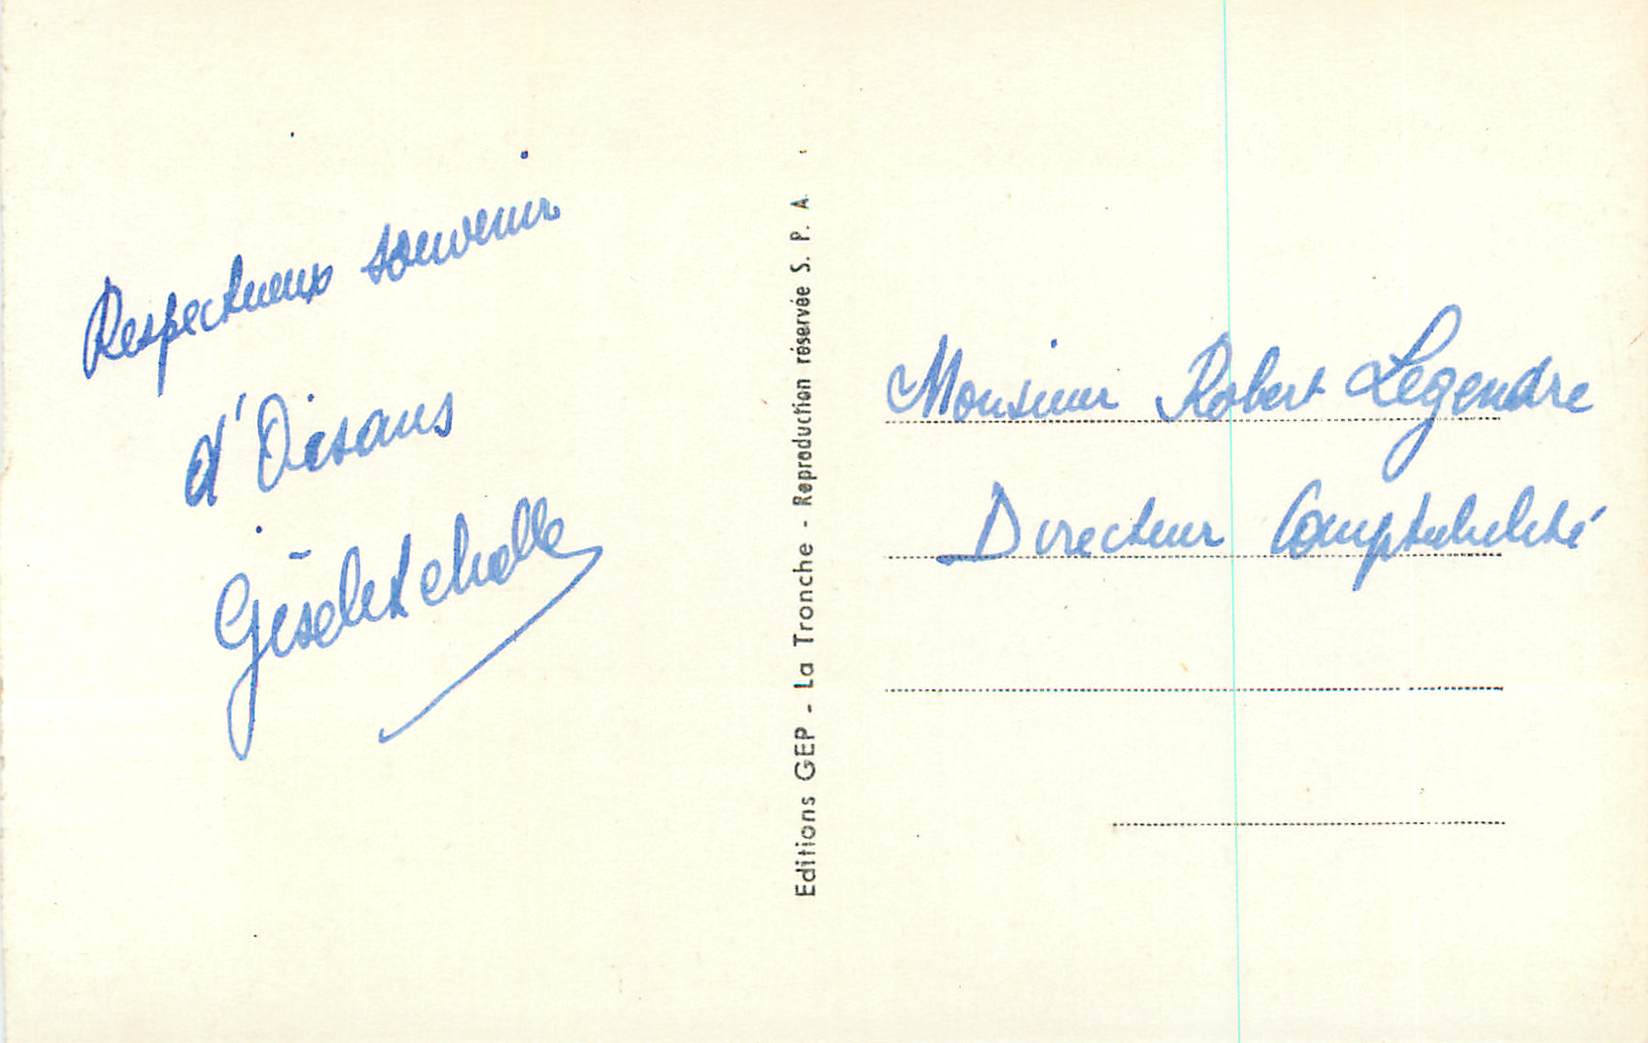 Respectueux souvenir
d'Oisans
Editions GEP - La Tronche - Reproduction réservée S. P. A.
Monsieur Robert Legendre
Directeur Comptabilité